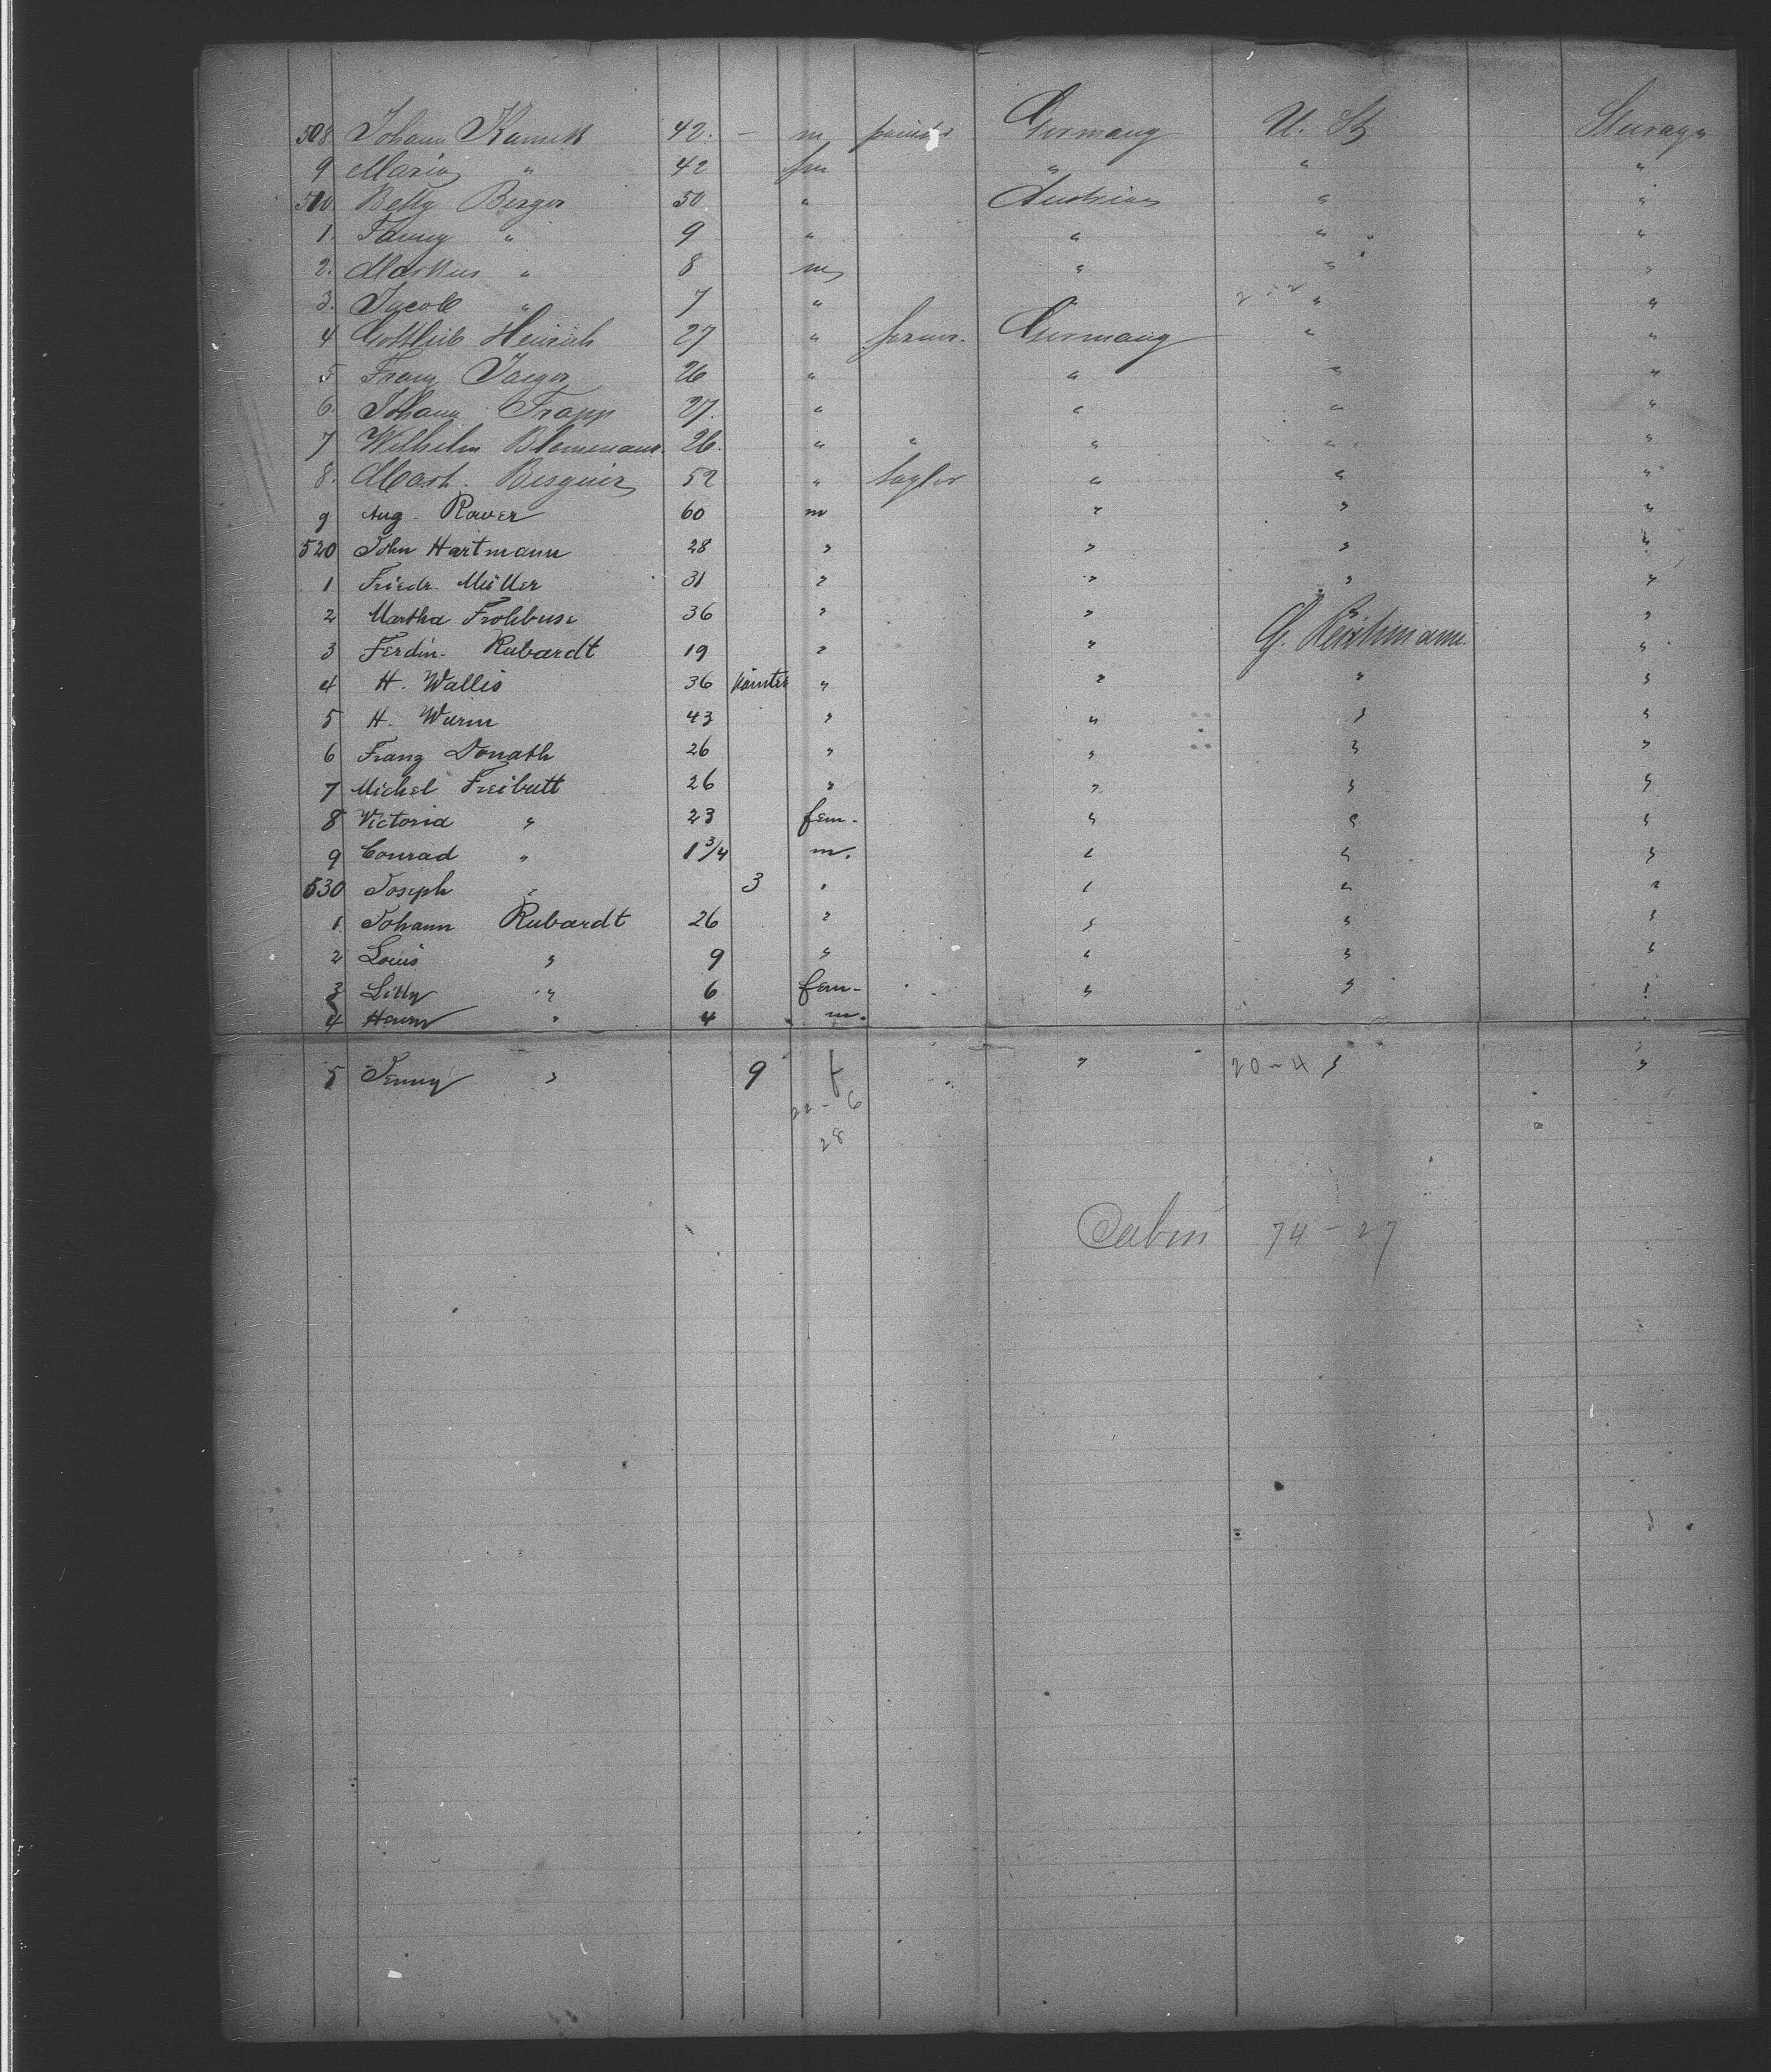 508. Johann Kamek 42. — m painter Germany U. St Steerage
9 Maria " 42 fm " " "
510 Betty Berger 30. " Austria " "
1. Fanny " 9 " " " "
2. Markus " 8 m " " "
3. Jacob " 7 " " "
4 Gottlieb Heinrich 27 " farmer. Germany " "
5 Franz Jaeger 26 " " " "
6. Johann Trapp 27. " " " "
7 Wilhelm Blommann. 26. " " " " "
8. Math. 52 " " " "
9 Aug. Rower 60 m " " "
520 John Hartmann 28 " " " "
1 Friedr. Müller 31 " " " "
2 Martha Frohbuse 36 " " " "
3 Ferdin. Rubardt 19 " " G. "
4 H. Wallis 36 painter " " " "
5 H. Wurm 43 " " " "
6 Franz Donath 26 " " " "
7 Michel Freibutt 26 " " " "
8 Victoria " 23 fem. " " "
9 Conrad " 1 3/4 m. " " "
530 Joseph " 3 " " " "
1 Johann Rubardt 26 " " " "
2 Louis " 9 " " " "
3 Lilly " 6 fem. " " "
4 " 4 m.
5 Jenny " 9 f " 20-4 " "
22-6
28
Cabin 74-27